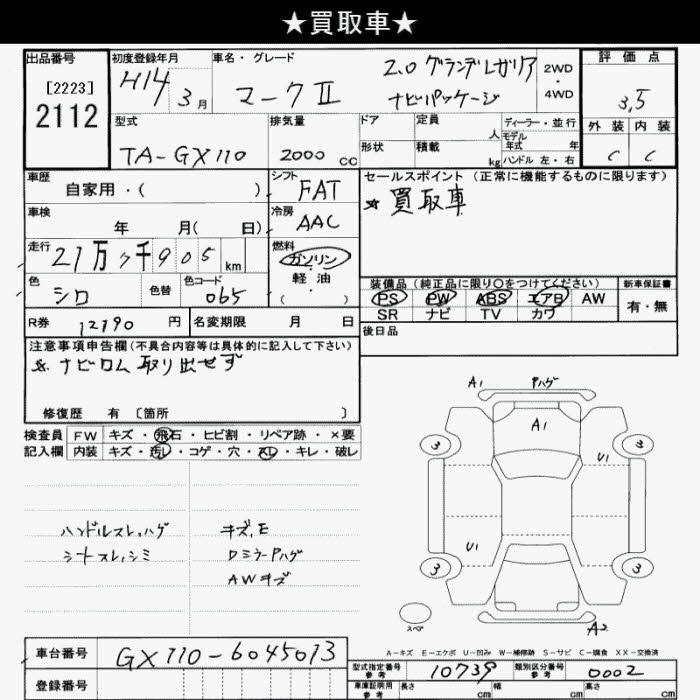 ★買取車★
出品番号
[2223]
2112
初度登録年月
H14 3月
車名・グレード
マークⅡ
2.0 グランデレガリア
ナビパッケージ
2WD
・
4WD
評価点
3.5
外装 内装
C C
型式
TA-GX110
排気量
2000 cc
ドア
定員
人
形状
積載
kg
ディーラー・並行
モデル年式 年
ハンドル 左・右
車歴
自家用・( )
シフト
FAT
車検
年 月( 日)
冷房
AAC
走行
21万7千905 km
燃料
ガソリン
・
軽油
( )
色
シロ
色替
色コード
065
セールスポイント (正常に機能するものに限ります)
☆買取車
装備品 (純正品に限り○をつけてください)
PS PW ABS エアB AW
SR ナビ TV カワ
新車保証書
有・無
R券 12190 円
名変期限 月 日
後日品
注意事項申告欄(不具合内容等は具体的に記入して下さい)
☆ナビロム取り出せず
修復歴 有 〔箇所 〕
検査員
記入欄
FW キズ・飛石・ヒビ割・リペア跡・×要
内装 キズ・汚レ・コゲ・穴・スレ・キレ・破レ
ハンドルスレ,ハゲ
シートスレ,シミ
キズ,E
DミラーPハゲ
AWキズ
A1 Pハゲ
A1
3
3
U1
U1
3
3
スペア
A2
A-キズ E-エクボ U-凹み W-補修跡 S-サビ C-腐食 XX-交換済
車台番号 GX110-6045013
登録番号
型式指定番号
参考
10739
類別区分番号
参考
0002
車庫証明用
参考
長さ cm
幅 cm
高さ cm